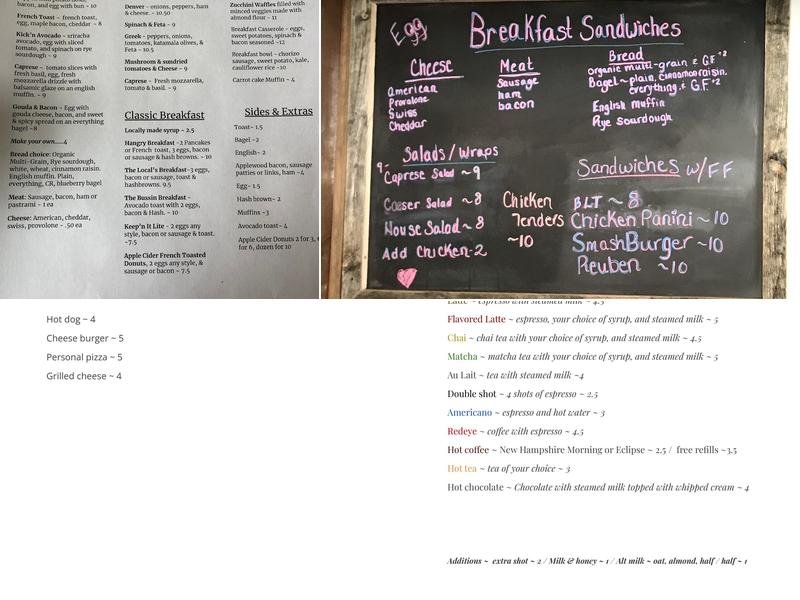 bacon, and egg with bun ~ 10
French Toast ~ french toast,
egg, maple bacon, cheddar ~ 8
Kick'n Avocado ~ sriracha
avocado, egg with sliced
tomato, and spinach on rye
sourdough ~ 9
Caprese ~ tomato slices with
fresh basil, egg, fresh
mozzarella drizzle with
balsamic glaze on an english
muffin. ~ 9
Gouda & Bacon ~ Egg with
gouda cheese, bacon, and sweet
& spicy spread on an everything
bagel ~8
Make your own.....4
Bread choice: Organic
Multi-Grain, Rye sourdough,
white, wheat, cinnamon raisin.
English muffin. Plain,
everything, CR, blueberry bagel
Meat: Sausage, bacon, ham or
pastrami ~ 1 ea
Cheese: American, cheddar,
swiss, provolone ~ .50 ea
Denver - onions, peppers, ham
& cheese. ~ 10.50
Spinach & Feta ~ 9
Greek - peppers, onions,
tomatoes, katamala olives, &
Feta ~ 10.5
Mushroom & sundried
tomatoes & Cheese ~ 9
Caprese ~ Fresh mozzarella,
tomato & basil. ~ 9
Classic Breakfast
Locally made syrup ~ 2.5
Hangry Breakfast ~2 Pancakes
or French toast, 3 eggs, bacon
or sausage & hash browns. ~ 10
The Local's Breakfast~3 eggs,
bacon or sausage, toast &
hashbrowns. 9.5
The Bussin Breakfast ~
Avocado toast with 2 eggs,
bacon & Hash. ~ 10
Keep'n It Lite ~ 2 eggs any
style, bacon or sausage & toast.
~7.5
Apple Cider French Toasted
Donuts, 2 eggs any style, &
sausage or bacon ~ 7.5
Zucchini Waffles filled with
minced veggies made with
almond flour ~ 11
Breakfast Casserole - eggs,
sweet potatoes, spinach &
bacon seasoned ~12
Breakfast bowl ~ chorizo
sausage, sweet potato, kale,
cauliflower rice ~10
Carrot cake Muffin ~ 4
Sides & Extras
Toast~ 1.5
Bagel ~2
English~ 2
Applewood bacon, sausage
patties or links, ham ~4
Egg~ 1.5
Hash brown~ 2
Muffins ~3
Avocado toast~ 4
Apple Cider Donuts 2 for 3,
for 6, dozen for 10
Egg Breakfast Sandwiches
Cheese
American
Provalone
Swiss
Cheddar
Meat
Sausage
ham
bacon
Bread
organic multi-grain & G.F +2
Bagel~plain, cinnamon raisin,
everything, & G.F +2
English Muffin
Rye Sourdough
Salads/Wraps
9-
Caprese Salad ~9
Caeser Salad ~8
House Salad ~ 8
Add Chicken-2
Chicken
Tenders
~10
Sandwiches w/FF
BLT ~ 8
Chicken Panini ~ 10
SmashBurger ~10
Reuben ~10
Hot dog ~ 4
Cheese burger ~ 5
Personal pizza ~ 5
Grilled cheese ~ 4
Latte ~ espresso with steamed milk ~ 4.5
Flavored Latte ~ espresso, your choice of syrup, and steamed milk ~ 5
Chai ~ chai tea with your choice of syrup, and steamed milk ~ 4.5
Matcha ~ matcha tea with your choice of syrup, and steamed milk ~ 5
Au Lait ~ tea with steamed milk ~4
Double shot ~ 4 shots of espresso ~ 2.5
Americano ~ espresso and hot water ~ 3
Redeye ~ coffee with espresso ~ 4.5
Hot coffee ~ New Hampshire Morning or Eclipse ~ 2.5 / free refills ~3.5
Hot tea ~ tea of your choice ~ 3
Hot chocolate ~ Chocolate with steamed milk topped with whipped cream ~ 4
Additions ~ extra shot ~ 2 / Milk & honey ~ 1 / Alt milk ~ oat, almond, half / half ~ 1